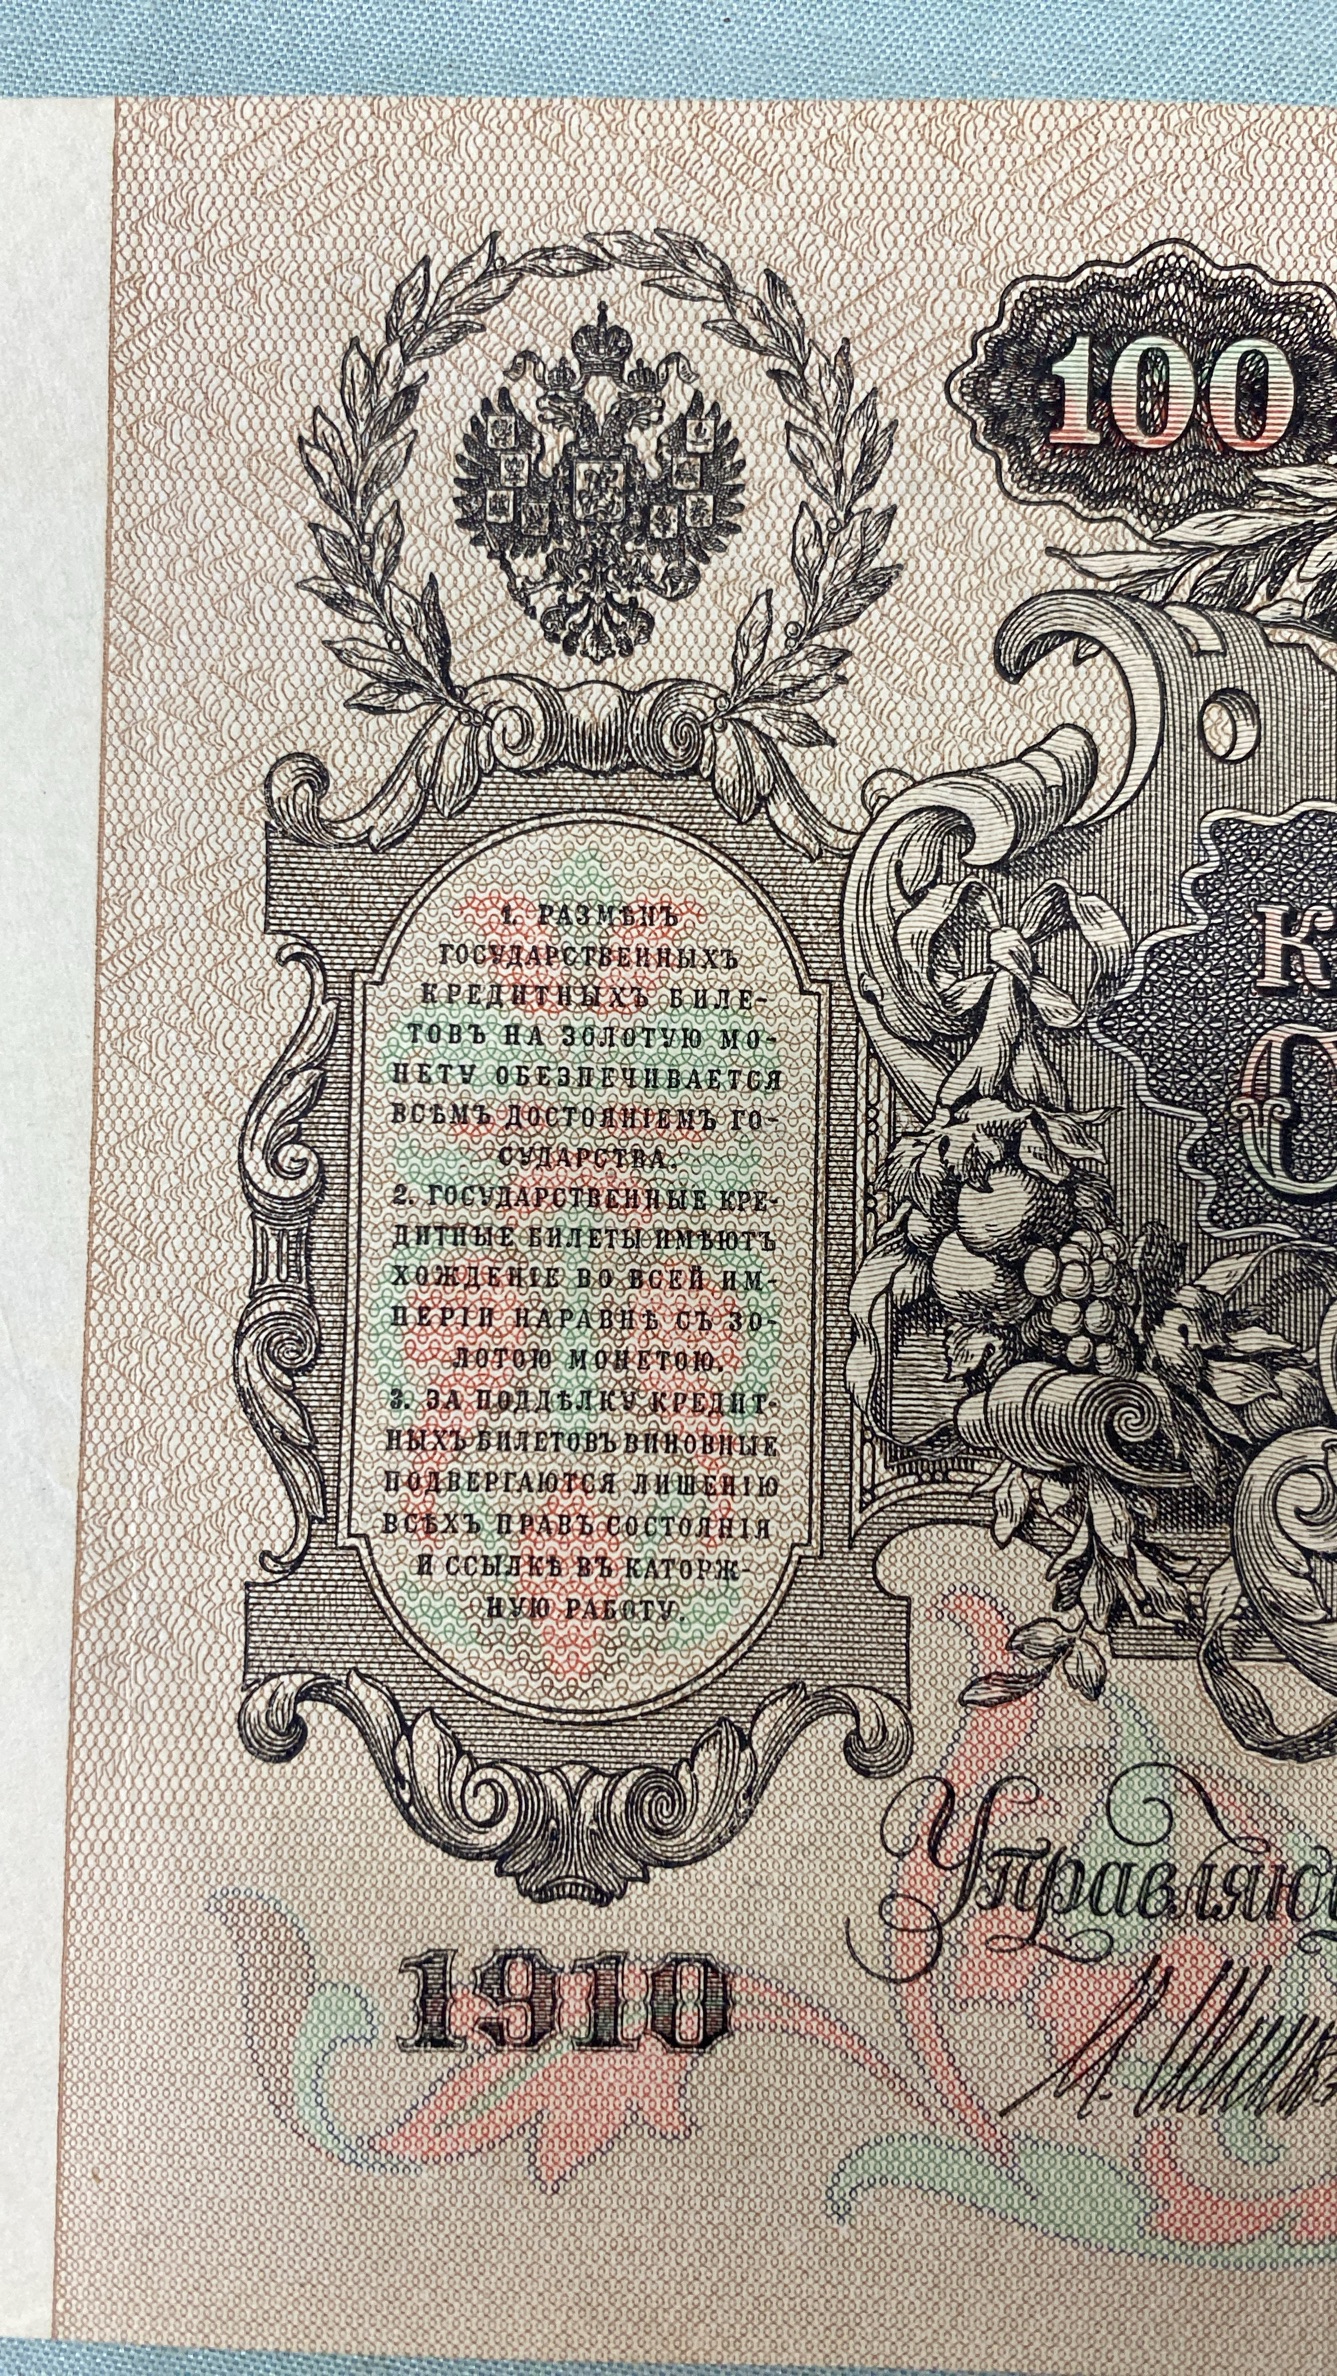 100
1. РАЗМѢНЪ
ГОСУДАРСТВЕННЫХЪ
КРЕДИТНЫХЪ БИЛЕ-
ТОВЪ НА ЗОЛОТУЮ МО-
НЕТУ ОБЕЗПЕЧИВАЕТСЯ
ВСѢМЪ ДОСТОЯНІЕМЪ ГО-
СУДАРСТВА.
2. ГОСУДАРСТВЕННЫЕ КРЕ-
ДИТНЫЕ БИЛЕТЫ ИМѢЮТЪ
ХОЖДЕНІЕ ВО ВСЕЙ ИМ-
ПЕРІИ НАРАВНѢ СЪ ЗО-
ЛОТОЮ МОНЕТОЮ.
3. ЗА ПОДДѢЛКУ КРЕДИТ-
НЫХЪ БИЛЕТОВЪ ВИНОВНЫЕ
ПОДВЕРГАЮТСЯ ЛИШЕНІЮ
ВСѢХЪ ПРАВЪ СОСТОЯНІЯ
И ССЫЛКѢ ВЪ КАТОРЖ-
НУЮ РАБОТУ.
К
С
Управляющ
1910